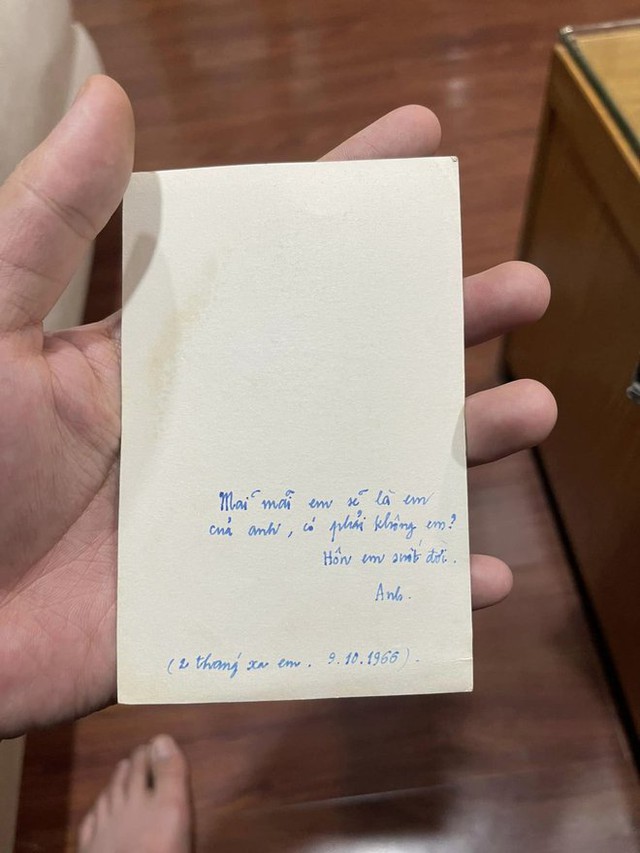 Mãi mãi em sẽ là em
của anh, có phải không em?
Hôn em suốt đời.
Anh.
(2 tháng xa em. 9.10.1966).